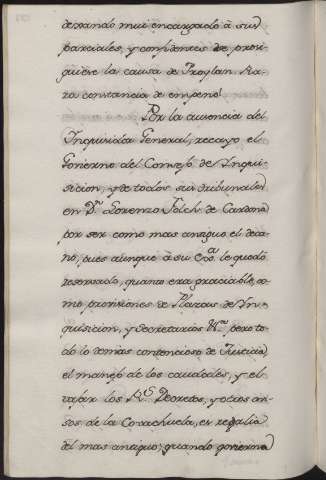 demando mui encargado à sus
parciales, y confidentes de prosi-
guiese la causa de Froylan. Ra-
ra constancia de empeño!
Por la ausencia del
Inquisidor General, recayo el
Govierno del Consejo de Inqui-
sicion, y de todos sus tribunales
en Dn. Lorenzo Folch de Cardona
por ser como mas antiguo el deca-
no, pues aunque à su Exa. le quedò
reservado, quanto era graciable, co-
mo provisiones de Plazas de Yn-
quisicion, y Secretarios Rs. pero to-
do lo demàs contencioso de Justicia,
el manejo de los caudales, y el
vajar los Rs. Decretos, y otros
de la Covachuela, es regalia
del mas antiguo; quando govierna